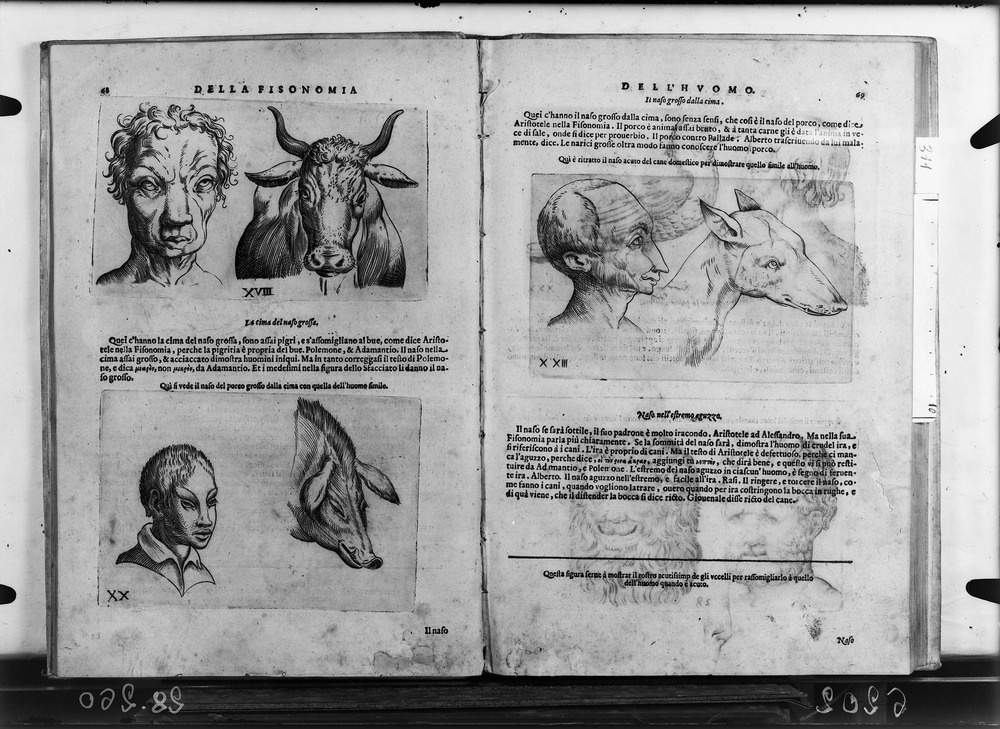 68
DELLA FISONOMIA
XVIII
La cima del naso grossa.
Quei c'hanno la cima del naso grossa, sono assai pigri, e s'assomigliano al bue, come dice Aristo-
tele nella Fisonomia, perche la pigritia è propria dei bue. Polemone, & Adamantio. Il naso nella
cima assai grosso, & acciaccato dimostra huomini iniqui. Ma in tanto correggasi il testo di Polemo-
ne, e dica μακρὸν, non μικρὸν, da Adamantio. Et i medesimi nella figura dello Sfacciato li danno il na-
so grosso.
Quì si vede il naso del porco grosso dalla cima con quella dell'huomo simile.
XX
Il naso
DELL'HVOMO.
69
Il naso grosso dalla cima.
Quei c'hanno il naso grosso dalla cima, sono senza sensi, che così è il naso del porco, come dice
Aristotele nella Fisonomia. Il porco è animal assai bruto, & à tanta carne gli è data l'anima in ve-
ce di sale, onde si dice per prouerbio. Il porco contro Pallade. Alberto trascriuendo da lui mala-
mente, dice. Le narici grosse oltra modo fanno conoscere l'huomo porco.
Quì è ritratto il naso acuto del cane domestico per dimostrare quello simile all'huomo.
XXIII
Naso nell'estremo aguzzo.
Il naso se sarà sottile, il suo padrone è molto iracondo. Aristotele ad Alessandro. Ma nella sua
Fisonomia parla più chiaramente. Se la sommità del naso sarà, dimostra l'huomo di crudel ira, e
si riferiscono à i cani. L'ira è proprio di cani. Ma il testo di Aristotele è defettuoso, perche ci man-
ca l'aguzzo, perche dice, aggiungi che dirà bene, e questo vi si può resti-
tuire da Adamantio, e Polemone. L'estremo del naso aguzzo in ciascun'huomo, è segno di feruen-
te ira. Alberto. Il naso aguzzo nell'estremo, è facile all'ira. Rasi. Il ringere, e torcere il naso, co-
me fanno i cani, quando vogliono latrare, ouero quando per ira costringono la bocca in rughe, e
di quà viene, che il distender la bocca si dice ricto. Giouenale disse ricto del cane.
Questa figura serue à mostrar il rostro acutissimo de gli vccelli per rassomigliarlo à quello
dell'huomo quando è acuto.
Naso
311
10
28.260
6202